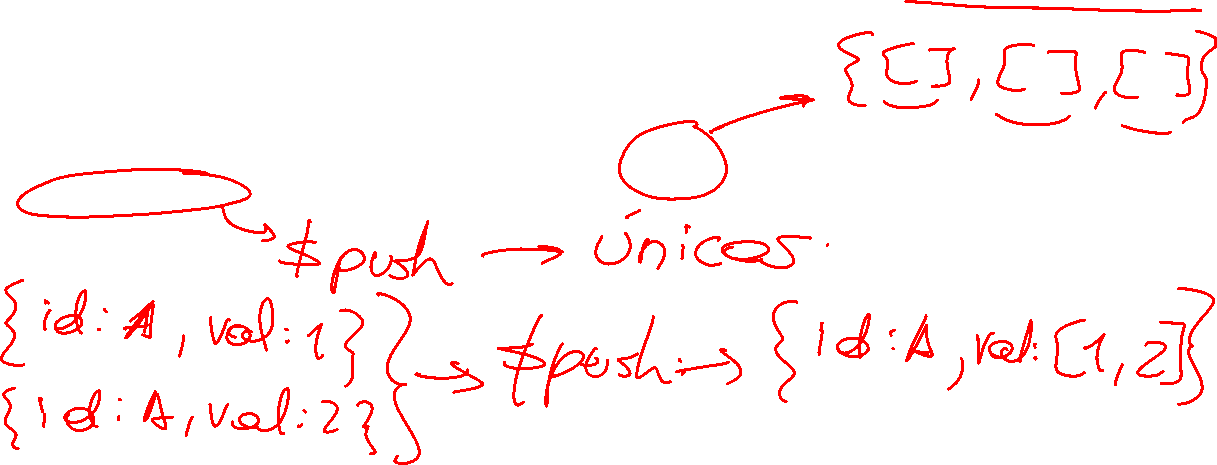 {[], [], []}
$push → únicos.
{id: A, val: 1}
{id: A, val: 2} } → $push → {id: A, val: [1, 2]}